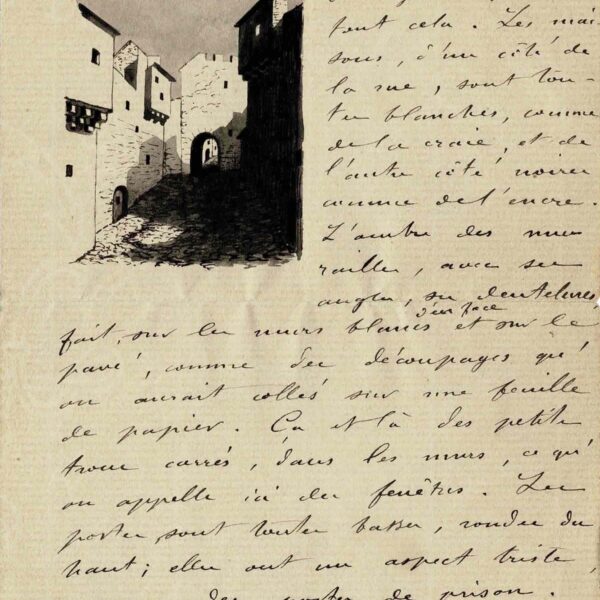 tout cela. Les mai-
sons, d'un côté de
la rue, sont tou-
tes blanches, comme
de la craie, et de
l'autre côté noires
comme de l'encre.
L'ombre des mu-
railles, avec ses
angles, ses dentelures,
d'en face
fait, sur les murs blancs et sur le
pavé, comme des découpages qu'
on aurait collés sur une feuille
de papier. Ça et là des petits
trous carrés, dans les murs, ce qu'
on appelle ici des fenêtres. Les
portes sont toutes basses, rondes du
haut; elles ont un aspect triste,
des portes de prison.